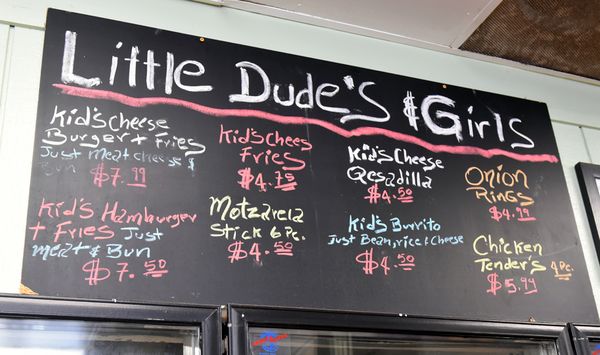 Little Dude's & Girls
Kid's cheese
Burger + Fries
Just meat cheese &
Bun
$7.99
Kid's Hamburger
+ Fries Just
meat & Bun
$7.50
Kid's Chees
Fries
$4.75
Motzarela
Stick 6 Pc.
$4.50
Kid's Cheese
Qesadilla
$4.50
Kid's Burrito
Just Bean, rice & Cheese
$4.50
Onion
Rings
$4.99
Chicken
Tender's 4 Pc.
$5.99